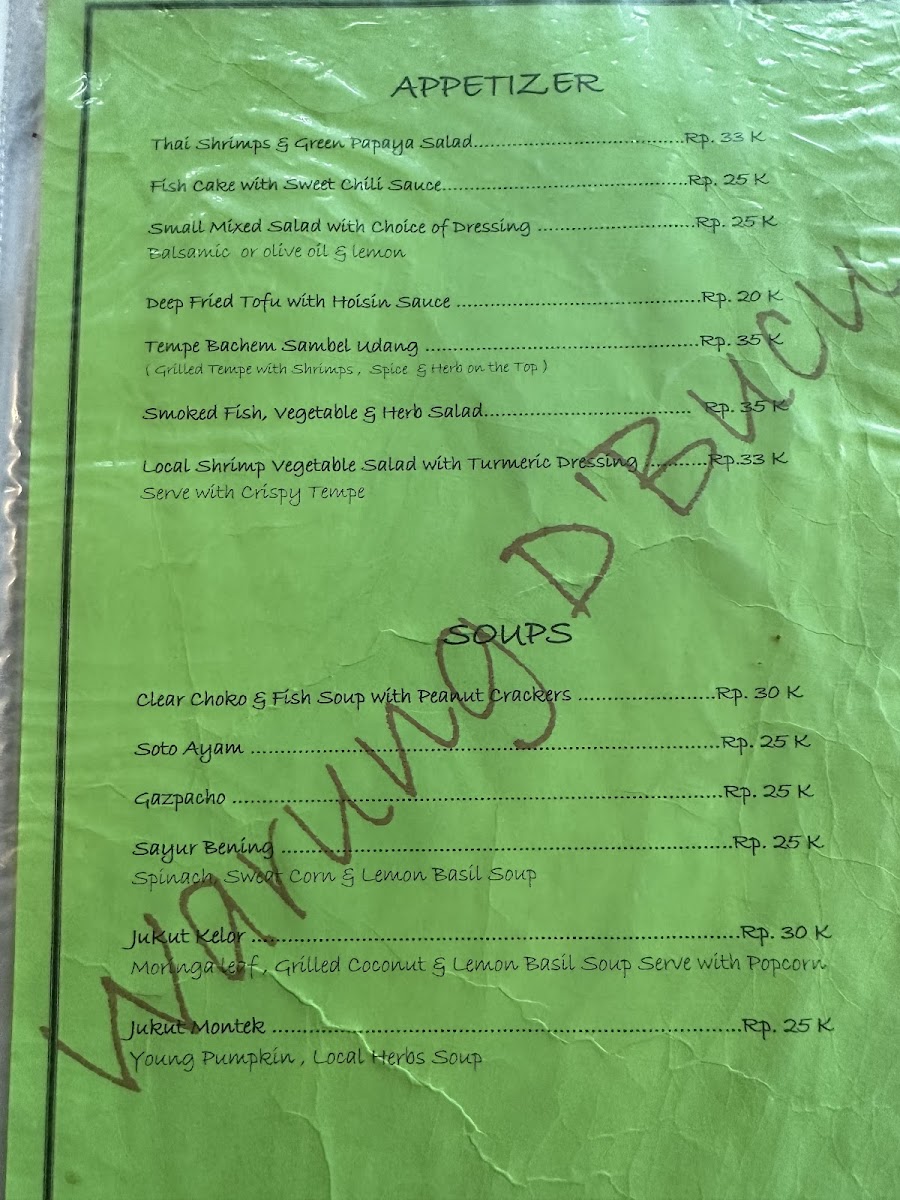 APPETIZER
Thai Shrimps & Green Papaya Salad......................................Rp. 33 K
Fish Cake with Sweet Chili Sauce............................................Rp. 25 K
Small Mixed Salad with Choice of Dressing ............................Rp. 25 K
Balsamic or olive oil & lemon
Deep Fried Tofu with Hoisin Sauce ............................................Rp. 20 K
Tempe Bachem Sambel Udang .................................................Rp. 35 K
( Grilled Tempe with Shrimps , Spice & Herb on the Top )
Smoked Fish, Vegetable & Herb Salad..................................... Rp. 35 K
Local Shrimp Vegetable Salad with Turmeric Dressing ...........Rp.33 K
Serve with Crispy Tempe
SOUPS
Clear Choko & Fish Soup with Peanut Crackers .......................Rp. 30 K
Soto Ayam ................................................................................Rp. 25 K
Gazpacho ...................................................................................Rp. 25 K
Sayur Bening ............................................................................Rp. 25 K
Spinach, Sweat Corn & Lemon Basil Soup
Jukut Kelor ..................................................................................Rp. 30 K
Moringa leaf , Grilled Coconut & Lemon Basil Soup Serve with Popcorn
Jukut Montek ..............................................................................Rp. 25 K
Young Pumpkin , Local Herbs Soup
Warung D'Bucu